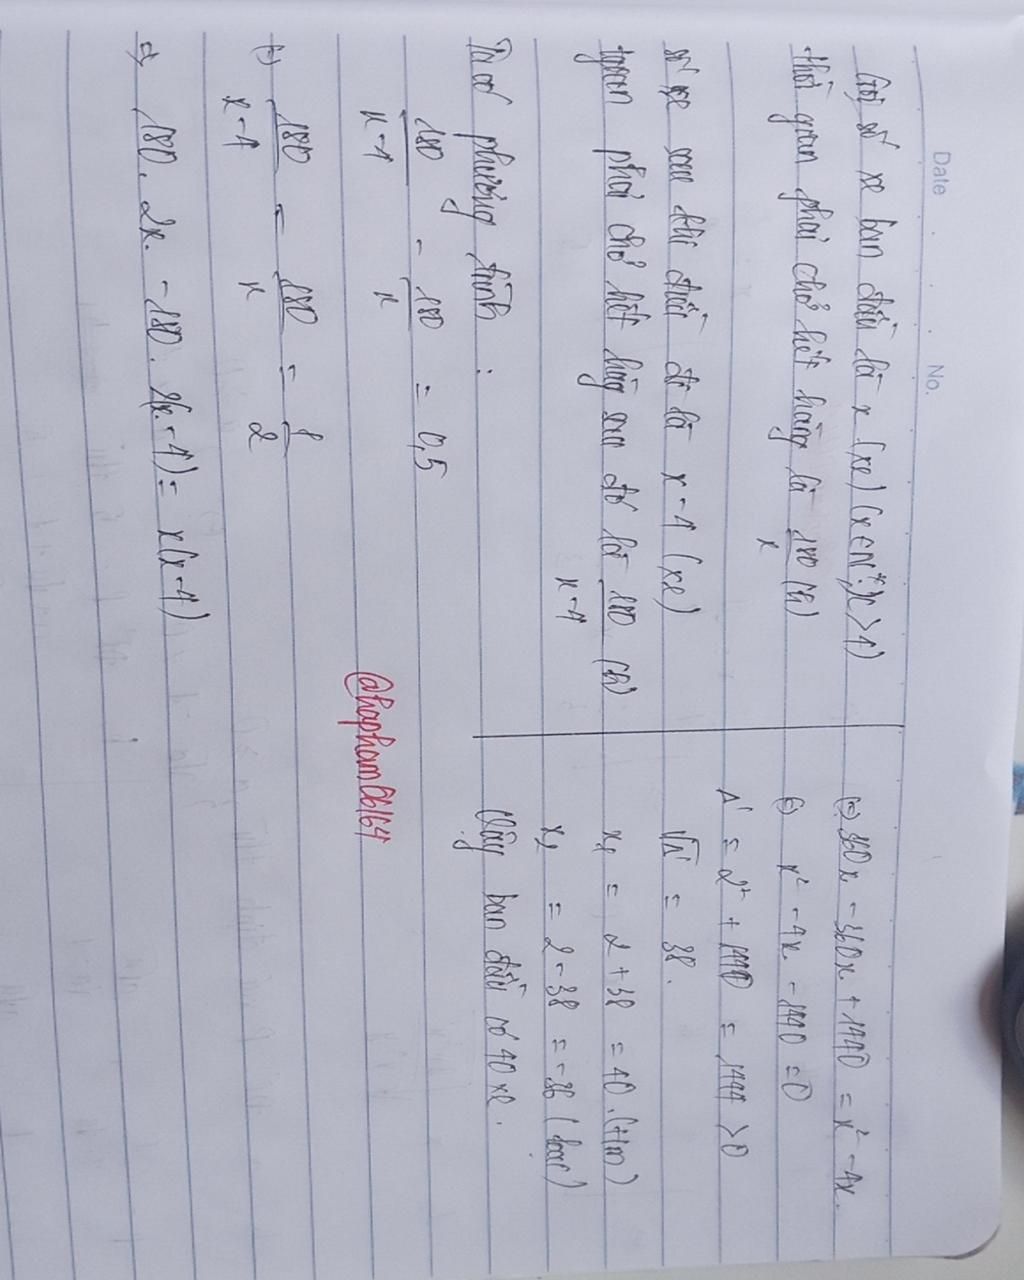 Date No.
Gọi số xe ban đầu là x (xe) (x∈N*; x > 4)
thời gian phải chở hết hàng là 180/x (h)
số xe sau khi điều đi là x - 4 (xe)
tgian phải chở hết hàng sau đó là 180/x-4 (h)
Ta có phương trình :
180/x-4 - 180/x = 0,5
(=) 180/x-4 - 180/x = 1/2
=) 180. 2x - 180. 2(x-4) = x(x-4)
(=) 360x - 360x + 1440 = x² - 4x.
(=) x² - 4x - 1440 = 0
Δ' = 2² + 1440 = 1444 > 0
√Δ' = 38.
x₁ = 2 + 38 = 40. (t/m)
x₂ = 2 - 38 = -36 (loại)
Vậy ban đầu có 40 xe.
@hapham06164